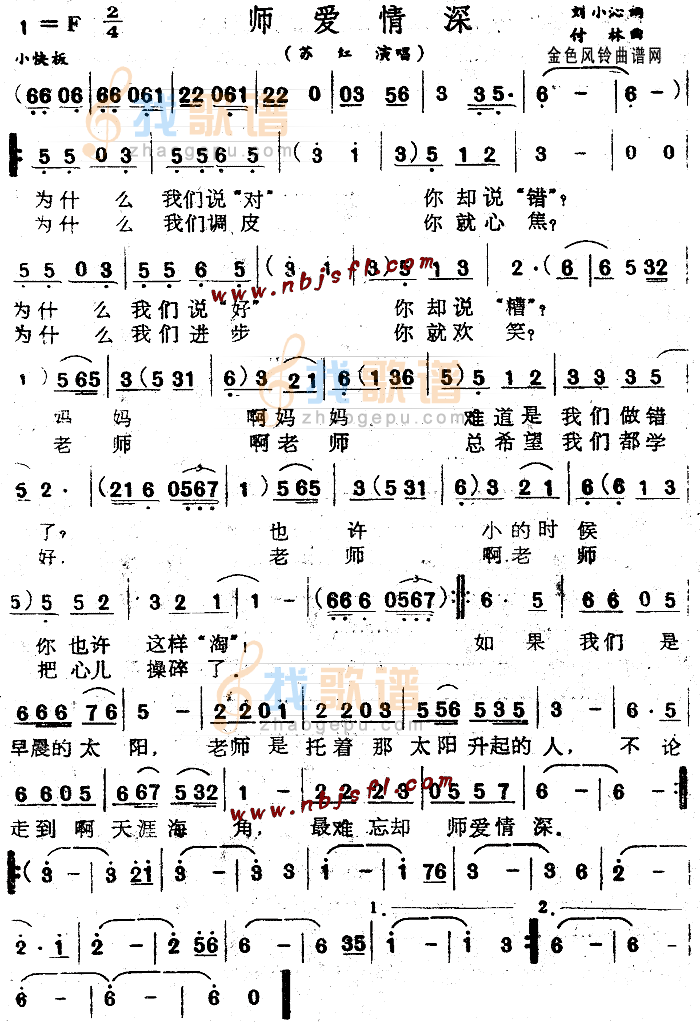 师爱情深
1=F 2/4
刘小沁 词
付林 曲
小快板
(苏红 演唱)
金色风铃曲谱网
(66 06 | 66 061 | 22 061 | 22 0 | 03 56 | 3 35· | 6 - | 6 -)
5 5 03 | 55 6 5 | (3 1 | 3) 5 1 2 | 3 - | 0 0
为什么我们说"对" 你却说"错"?
为什么我们调皮 你就心焦?
5 5 03 | 5 5 6 5 | (3 1 | 3) 5 1 3 | 2·(6 | 6 5 32
为什么我们说"好" 你却说"糟"?
为什么我们进步 你就欢笑?
www.nbjsfl.com
1) 565 | 3(531 | 6)3 21 | 6(136 | 5)5 1 2 | 3 3 3 5
妈妈 啊妈妈 难道是我们做错
老师 啊老师 总希望我们都学
找歌谱
zhaogepu.com
5 2· | (216 0567 | 1) 565 | 3(531 | 6)3 2 1 | 6(6 1 3
了? 也许 小的时候
好. 老师 啊老师
5) 5 5 2 | 3 2 1 | 1 - | (666 0567) | 6· 5 | 66 05
你也许 这样"淘"! 如果我们是
把心儿 操碎了.
666 76 | 5 - | 2 201 | 2203 | 556 535 | 3 - | 6· 5
早晨的太阳, 老师是托着那太阳升起的人, 不论
6605 | 667 532 | 1 - | 22 23 | 0557 | 6 - | 6 -
走到啊天涯海角, 最难忘却 师爱情深.
www.nbjsfl.com
(3 - | 3 21 | 3 - | 3 3 | 1 - | 1 76 | 3 - | 3 6 | 2 -
2· 1 | 2 - | 2 56 | 6 - | 6 35 | 1. 1 - | 1 3 | 2. 6 -
6 - | 6 - | 6 - | 6 0